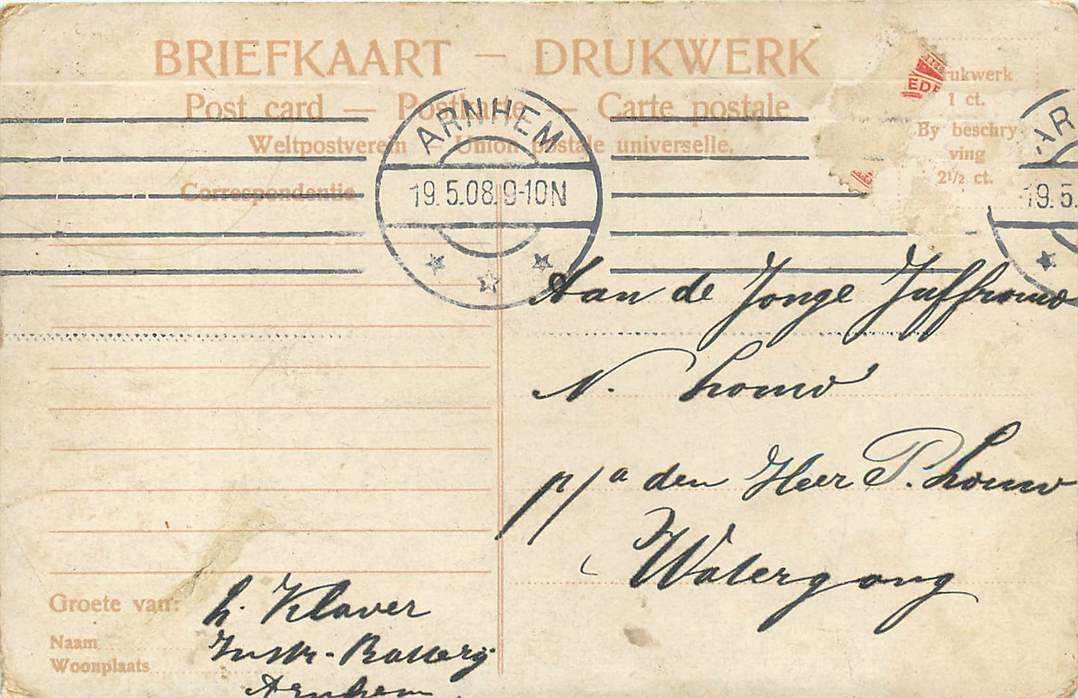 BRIEFKAART — DRUKWERK
Post card — Postkarte — Carte postale
Weltpostverein — Union postale universelle.
Correspondentie
ARNHEM
19.5.08.9-10N
EDE
Drukwerk
1 ct.
By beschry
ving
2½ ct.
AR
19.5.
Aan de Jonge Juffrouw
N. Louw
p/a den Heer P. Louw
Watergang
Groete van: L. Klaver
Naam Instr-Batterij
Woonplaats Arnhem.